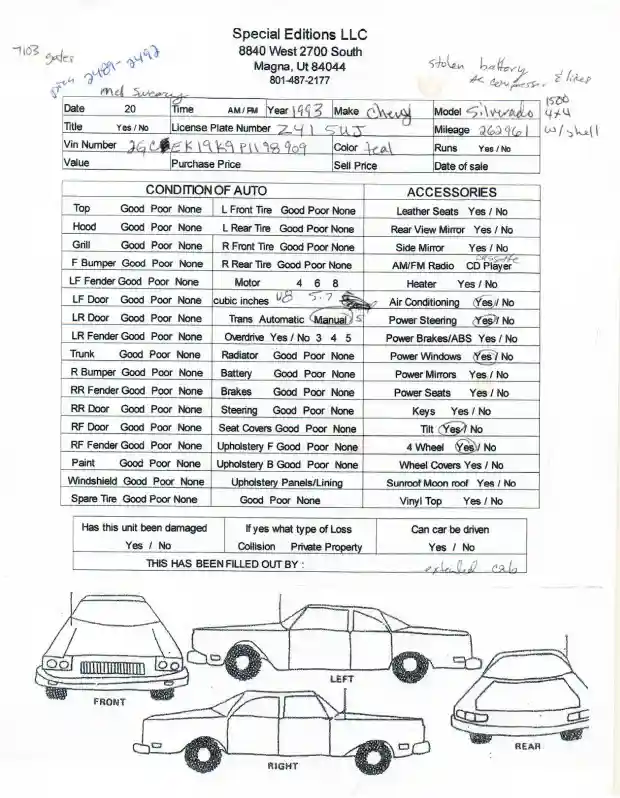 Special Editions LLC
8840 West 2700 South
Magna, Ut 84044
801-487-2177
7103 gates
2489-2492
stolen battery
AC compressor & lites
Date 20 Time AM/PM Year 1993 Make Chevy Model Silverado 1500
4x4
w/shell
Title Yes / No License Plate Number Z41 5UJ Mileage 262961
Vin Number 2GCEK19K9P1198909 Color teal Runs Yes / No
Value Purchase Price Sell Price Date of sale
CONDITION OF AUTO ACCESSORIES
Top Good Poor None L Front Tire Good Poor None Leather Seats Yes / No
Hood Good Poor None L Rear Tire Good Poor None Rear View Mirror Yes / No
Grill Good Poor None R Front Tire Good Poor None Side Mirror Yes / No
F Bumper Good Poor None R Rear Tire Good Poor None AM/FM Radio cassette CD Player
LF Fender Good Poor None Motor 4 6 8 Heater Yes / No
LF Door Good Poor None cubic inches V8 5.7 Air Conditioning Yes / No
LR Door Good Poor None Trans Automatic Manual 5 Power Steering Yes / No
LR Fender Good Poor None Overdrive Yes / No 3 4 5 Power Brakes/ABS Yes / No
Trunk Good Poor None Radiator Good Poor None Power Windows Yes / No
R Bumper Good Poor None Battery Good Poor None Power Mirrors Yes / No
RR Fender Good Poor None Brakes Good Poor None Power Seats Yes / No
RR Door Good Poor None Steering Good Poor None Keys Yes / No
RF Door Good Poor None Seat Covers Good Poor None Tilt Yes / No
RF Fender Good Poor None Upholstery F Good Poor None 4 Wheel Yes / No
Paint Good Poor None Upholstery B Good Poor None Wheel Covers Yes / No
Windshield Good Poor None Upholstery Panels/Lining Sunroof Moon roof Yes / No
Spare Tire Good Poor None Good Poor None Vinyl Top Yes / No
Has this unit been damaged If yes what type of Loss Can car be driven
Yes / No Collision Private Property Yes / No
THIS HAS BEEN FILLED OUT BY :
extended cab
FRONT
LEFT
RIGHT
REAR